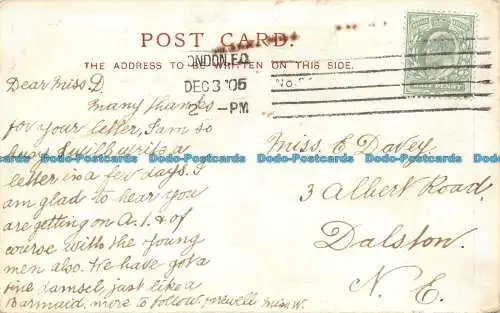 POST CARD.
THE ADDRESS TO BE WRITTEN ON THIS SIDE.
LONDON. E.C.
DEC 3 '05
2 - PM
Dear Miss D.
Many thanks
for your letter, I am so
busy I will write a
letter in a few days. I
am glad to hear you
are getting on A.1. & of
course with the young
men also. We have got a
fine damsel, just like a
Barmaid. more to follow. farewell Miss W.
Miss. E Davey
3 Albert Road,
Dalston.
N. E.
Dodo-Postcards Dodo-Postcards Dodo-Postcards Dodo-Postcards